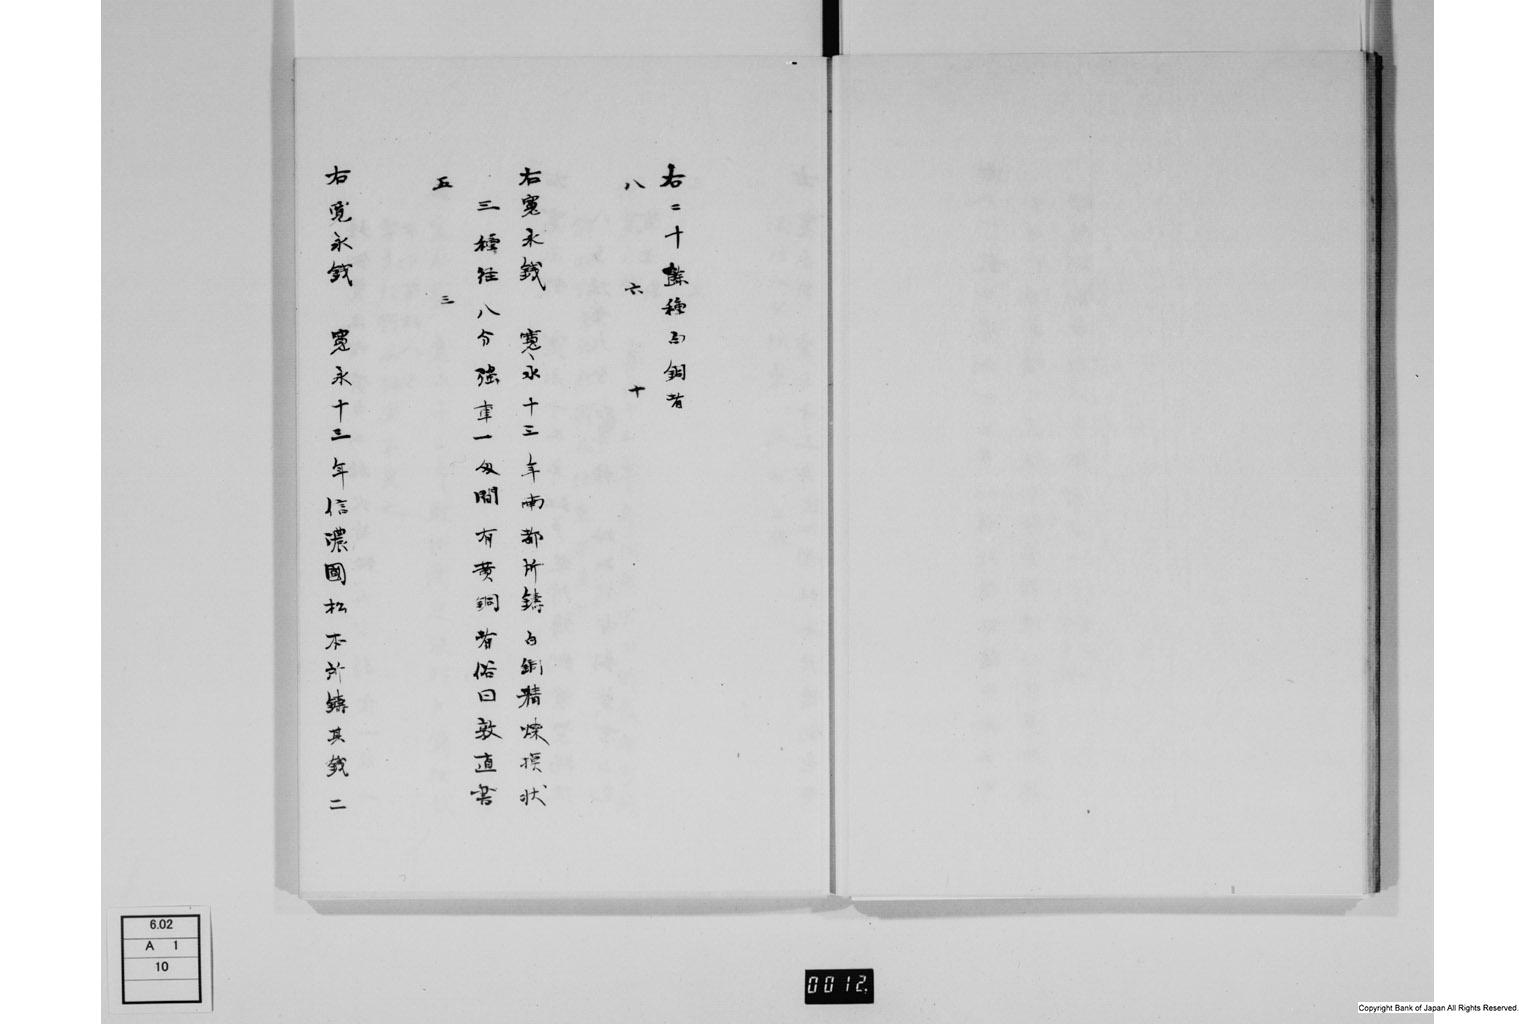 右二十餘種白銅者
八 六 十
右寛永錢 寛永十三年南都所鑄白銅精煉摸状
三種径八分強重一匁間有黄銅者俗曰敦直書
五 三
右寛永錢 寛永十三年信濃國松本所鑄其錢二
6.02
A 1
10
0012.
Copyright Bank of Japan All Rights Reserved.